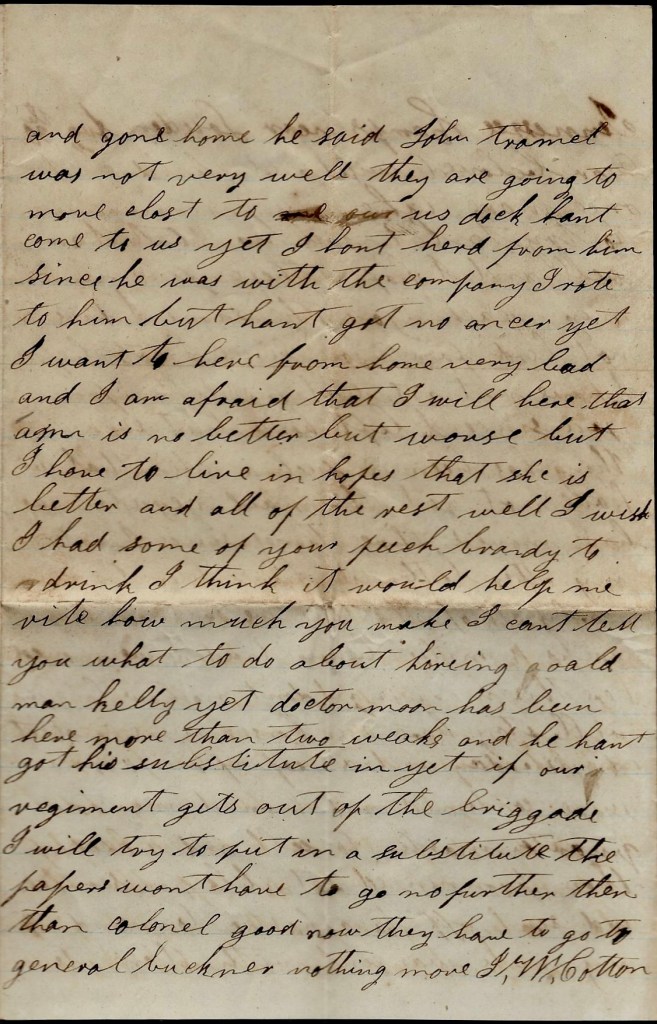 and gone home he said John tramel
was not very well they are going to
move clost to us dock hant
come to us yet I hont herd from him
since he was with the company I rote
to him but hant got no ancer yet
I want to here from home very bad
and I am afraid that I will here that
ann is no better but worse but
I have to live in hopes that she is
better and all of the rest well I wish
I had some of your peech brandy to
drink I think it would help me
rite how much you make I cant tell
you what to do about hireing oald
man kelly yet doctor moon has been
here more than two weaks and he hant
got his substitute in yet if our
regiment gets out of the briggade
I will try to put in a substitute the
papers wont have to go no further then
than colonel good now they have to go to
general buckner nothing more J, W, Cotton